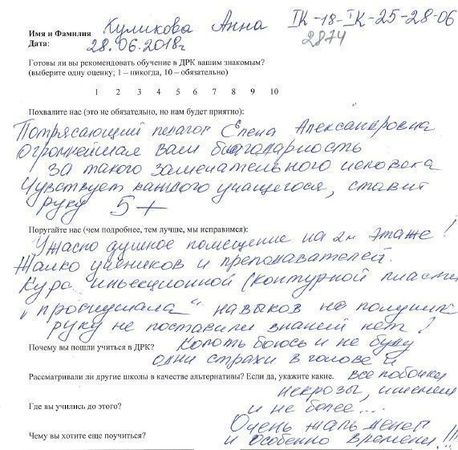 Имя и Фамилия Куликова Анна IК-18-IК-25-28-06
Дата: 28.06.2018г 2874
Готовы ли вы рекомендовать обучение в ДРК вашим знакомым?
(выберите одну оценку; 1 – никогда, 10 – обязательно)
1 2 3 4 5 6 7 8 9 10
Похвалите нас (это не обязательно, но нам будет приятно):
Потрясающий педагог Елена Александровна
Огромнейшая вам благодарность
за такого замечательного человека
Чувствует каждого учащегося, ставит
руку 5+
Поругайте нас (чем подробнее, тем лучше, мы исправимся):
Ужасно душное помещение на 2м этаже!
Жалко учеников и преподавателей.
Курс инъекционной (контурной пласти
"просидиала" навыков не получила
руку не поставили знаний нет!
Почему вы пошли учиться в ДРК? Колоть боюсь и не буду
одни страхи в голове и
Рассматривали ли другие школы в качестве альтернативы? Если да, укажите какие. все побочки
некрозы, ишемии
Где вы учились до этого? и не более...
Очень жаль денег
Чему вы хотите еще поучиться? и особенно времени!!!